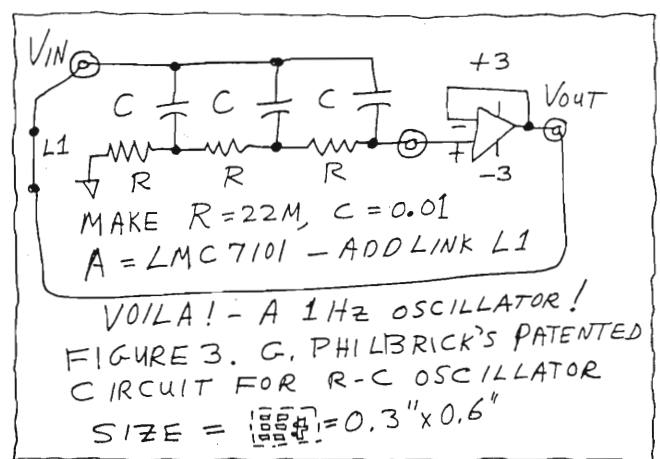 VIN
+3
VOUT
C C C
-
+
L1
R R R
-3
MAKE R=22M, C=0.01
A = LMC7101 - ADD LINK L1
VOILA! - A 1HZ OSCILLATOR!
FIGURE 3. G. PHILBRICK'S PATENTED
CIRCUIT FOR R-C OSCILLATOR
SIZE = =0.3"x0.6"